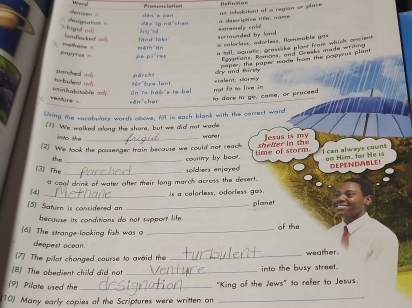 Word Pronunciation Definition
denizen n. dĕn′ə-zən an inhabitant of a region or place
designation n. dĕz′ĭg-nā′shən a descriptive title; name
frigid adj. frĭj′ĭd extremely cold
landlocked adj. lănd′lŏkt′ surrounded by land
methane n. mĕth′ān a colorless, odorless, flammable gas
papyrus n. pə-pī′rəs a tall, aquatic, grasslike plant from which ancient
Egyptians, Romans, and Greeks made writing
paper; the paper made from the papyrus plant
parched adj. pärcht dry and thirsty
turbulent adj. tûr′byə-lənt violent; stormy
uninhabitable adj. ŭn′ĭn-hăb′ə-tə-bəl not fit to live in
venture v. vĕn′chər to dare to go, come, or proceed
Using the vocabulary words above, fill in each blank with the correct word.
(1) We walked along the shore, but we did not wade
into the frigid water.
(2) We took the passenger train because we could not reach
the country by boat.
(3) The parched soldiers enjoyed
a cool drink of water after their long march across the desert.
(4) Methane is a colorless, odorless gas.
(5) Saturn is considered an planet
because its conditions do not support life.
(6) The strange-looking fish was a of the
deepest ocean.
(7) The pilot changed course to avoid the turbulent weather.
(8) The obedient child did not venture into the busy street.
(9) Pilate used the designation "King of the Jews" to refer to Jesus.
(10) Many early copies of the Scriptures were written on
Jesus is my
shelter in the
time of storm.
I can always count
on Him, for He is
DEPENDABLE!